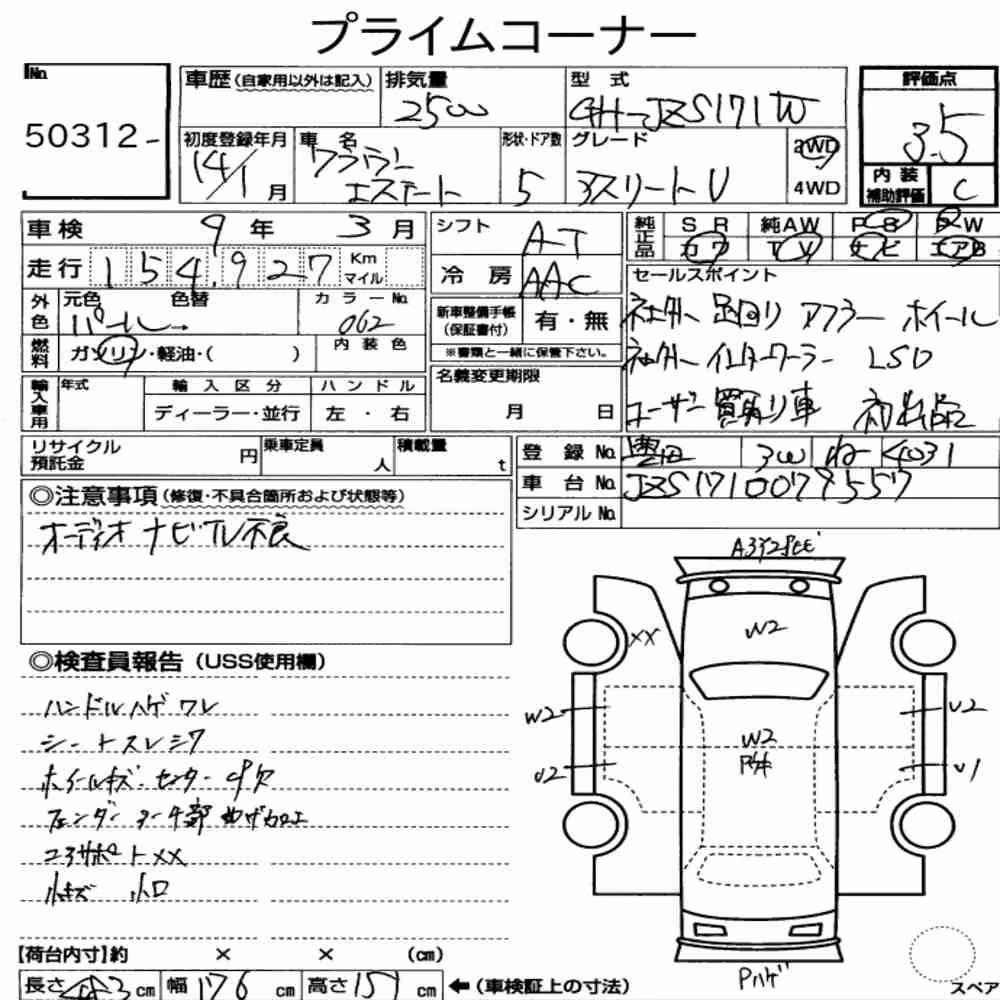 プライムコーナー
No.
50312-
車歴(自家用以外は記入)
排気量
2500
型式
GH-JZS171W
評価点
3.5
初度登録年月
14/1月
車名
クラウン
エステート
形状・ドア数
5
グレード
アスリートV
2WD
4WD
内装
補助評価
C
車検 9年 3月
シフト
AT
純正品
SR 純AW PS PW
カワ TV ナビ エアB
走行 154,927 Km マイル
冷房
AAC
セールスポイント
外色
元色 色替
パール→
カラーNo.
062
新車整備手帳
(保証書付)
有・無
社外 足回り マフラー ホイール
※書類と一緒に保管下さい。
燃料
ガソリン・軽油・( )
内装色
社外 インタークーラー LSD
輸入車用
年式
輸入区分
ハンドル
ディーラー・並行
左・右
名義変更期限
月 日
ユーザー買取り車 初出品
リサイクル
預託金
円
乗車定員
人
積載量
t
登録No. 豊田 300 ね 4031
車台No. JZS171 0079557
シリアルNo.
◎注意事項(修復・不具合箇所および状態等)
オーディオ ナビ TV不良
◎検査員報告(USS使用欄)
ハンドルハゲ ワレ
シートスレ シワ
ホイールキズ・センターC欠
フェンダー アーチ部 曲げ加工
コアサポートXX
小キズ 小凹
XX
W2
W2
U2
W2
U2
U1
Pハゲ
スペア
【荷台内寸】約 × × (cm)
長さ 483 cm 幅 176 cm 高さ 151 cm ←(車検証上の寸法)